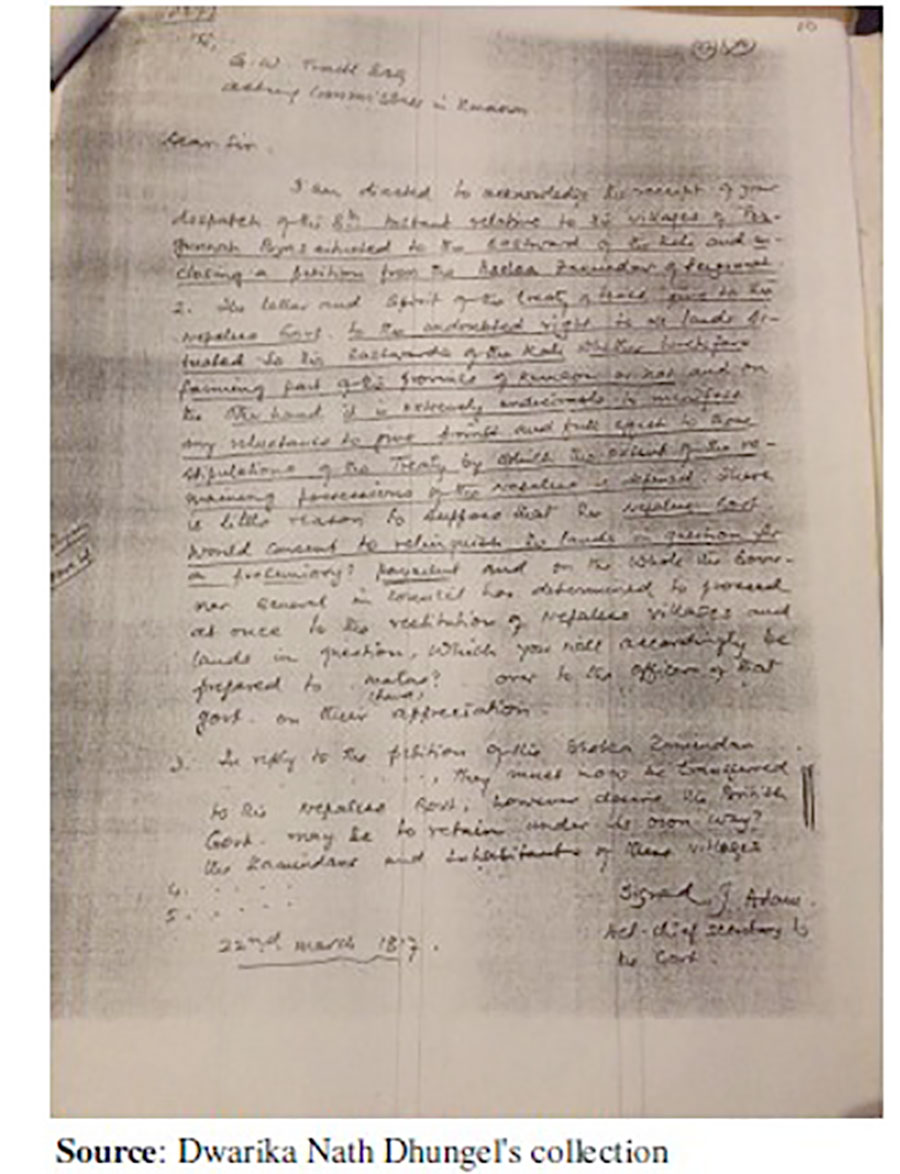 10
To,
G. W. Traill Esq
Acting Commissioner in Kumaon
Dear Sir.
I am directed to acknowledge the receipt of your
despatch of the 8th Instant relative to the villages of Per-
gunnah Byas situated to the Eastward of the Kali and en-
closing a petition from the Zamindar of
2. The letter and Spirit of the treaty of peace give to the
Nepalese Govt. to the undoubted right in all lands si-
tuated to the Eastwards of the Kali whether heretofore
forming part of the province of Kumaon or not and on
the other hand it is extremely undesirable to manifest
any reluctance to give prompt and full effect to those
stipulations of the Treaty by which the extent of the re-
maining possessions of the Nepalese is defined. There
is little reason to suppose that the Nepalese Govt.
would consent to relinquish the lands in question for
a ? payment and on the whole the Gover-
nor General in Council has determined to proceed
at once to the restitution of Nepalese villages and
lands in question, which you will accordingly be
prepared to ? over to the officers of that
(hand)
govt. on their appreciation.
3. In reply to the petition of the Zamindar
. . . . , they must now be transferred
to the Nepalese Govt, however desire the British
Govt. may be to retain under its own way?
the Zamindars and inhabitants of these villages
4. . . . . .
5. . . . . .
Signed J. Adam.
Act-chief Secretary to
the Govt.
22nd March 1817.
Source: Dwarika Nath Dhungel's collection